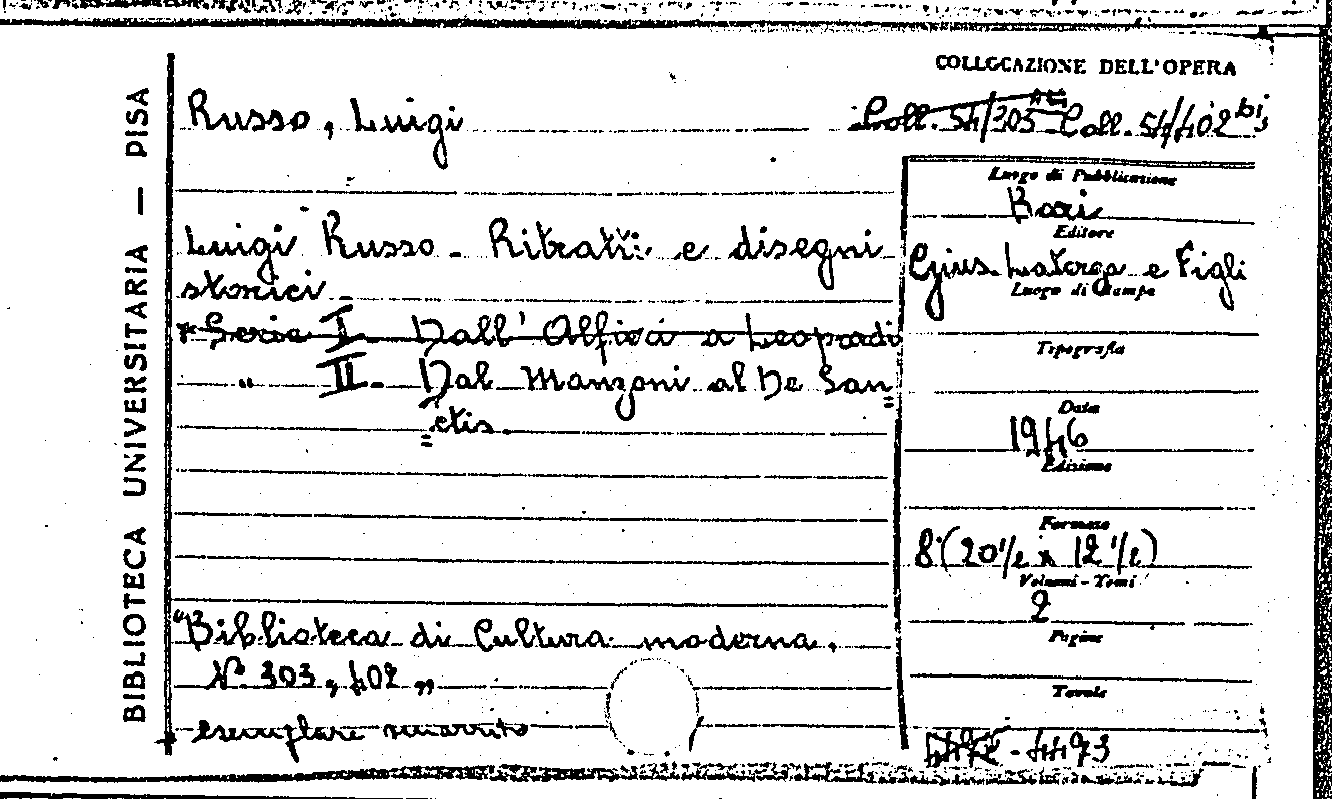 BIBLIOTECA UNIVERSITARIA — PISA
COLLOCAZIONE DELL'OPERA
Russo, Luigi
Coll. 54/303 Coll. 54/402 bis
Luogo di Pubblicazione
Bari
Editore
Luigi Russo - Ritratti e disegni
storici -
Gius. Laterza e Figli
Luogo di Stampa
* Serie I - Dall' Alfieri a Leopardi
Tipografia
" II - Dal Manzoni al De San=
=ctis.
Data
1946
Edizione
Formato
8° (20 1/2 x 12 1/2)
Volumi - Tomi
2
Pagine
"Biblioteca di Cultura moderna.
N. 303, 402 "
Tavole
* esemplare smarrito
4472 - 4473